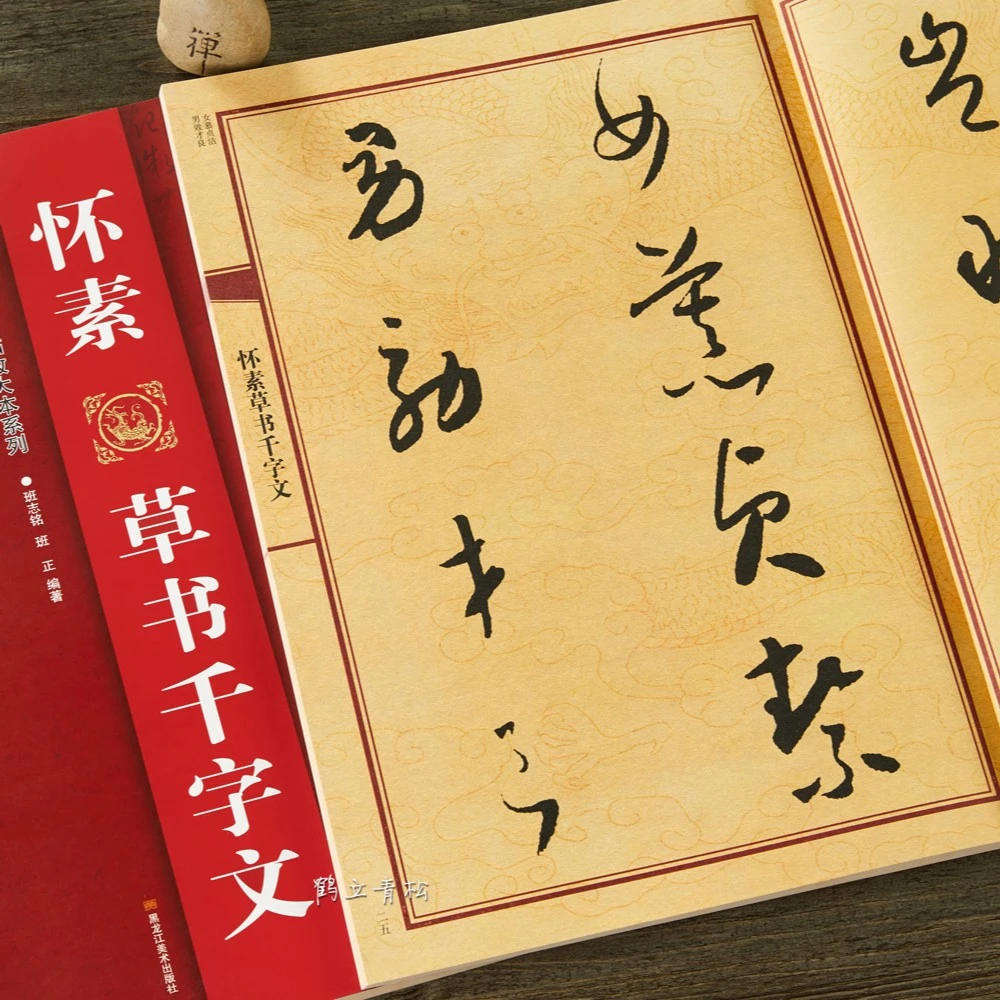 禪
怀素
草书千字文
大本系列
班志铭 班 正 编著
黑龙江美术出版社
女慕贞洁
男效才良
怀素草书千字文
豈
女慕貞絜
男効才良
二五
鹤立青松